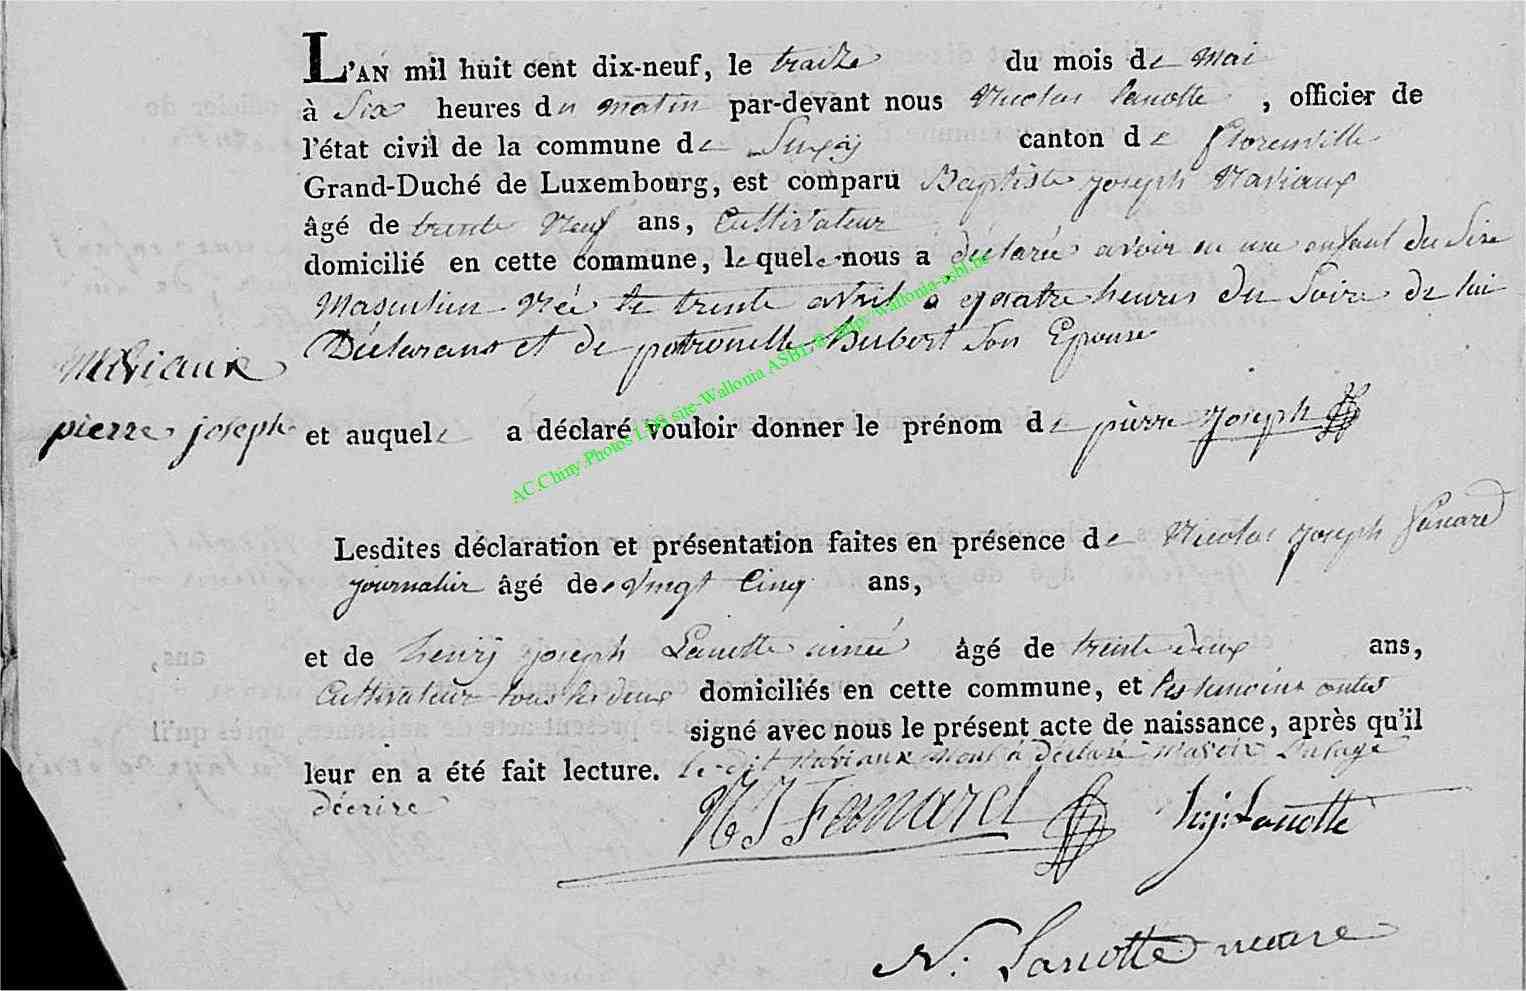 L'AN mil huit cent dix-neuf, le traize du mois de mai
à Six heures du matin par-devant nous Nicolas Lanotte, officier de
l'état civil de la commune de Suxÿ canton de florenville
Grand-Duché de Luxembourg, est comparu Baptiste joseph Naviaux
âgé de trente Neuf ans, Cultivateur
domicilié en cette commune, lequel nous a déclarée avoir eu une enfant du Sexe
Masculien Née le trente avril a quatre heures du Soire de lui
Déclarant et de petronelle hubert Son Epouse
Naviaux
pierre joseph
et auquel a déclaré vouloir donner le prénom de pierre joseph
AC.Chiny Photos LDS site-Wallonia ASBL
Lesdites déclaration et présentation faites en présence de Nicolas joseph fanard
journalier âgé de vingt Cinq ans,
et de henrÿ joseph Lanotte ainné âgé de trente deux ans,
Cultivateur tous les deux domiciliés en cette commune, et les temoins ontes
signé avec nous le présent acte de naissance, après qu'il
leur en a été fait lecture. le dit Naviaux nous a déclaré Navoir Lusage
décrire
N J Fanard hrj: Lanotte
N: Lanotte maire